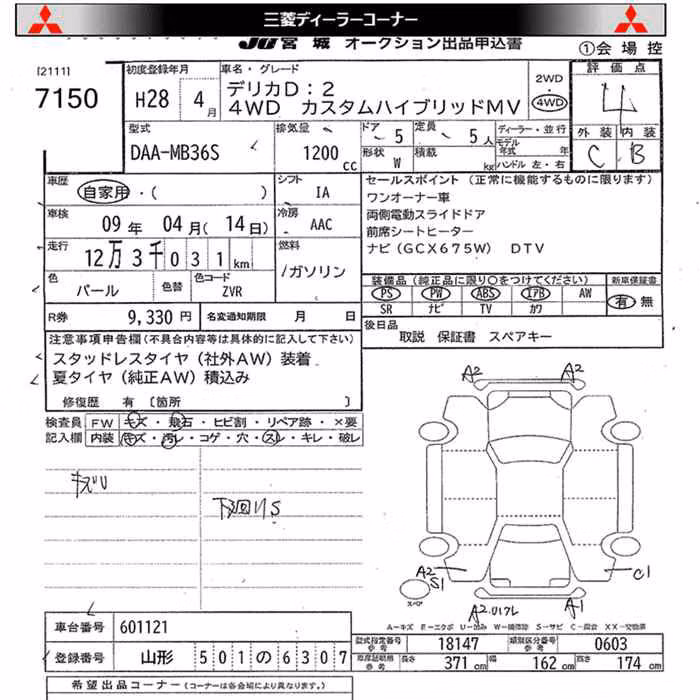 三菱ディーラーコーナー
JU宮城 オークション出品申込書
①会場控
[2111]
7150
初度登録年月
H28 4月
車名・グレード
デリカD:2
4WD カスタムハイブリッドMV
2WD
・
4WD
評価点
4
外装 内装
C B
型式
DAA-MB36S
排気量
1200 cc
ドア 5
定員 5人
形状 W
積載 kg
ディーラー・並行
モデル年式 年
ハンドル 左・右
車歴
自家用・( )
シフト
IA
車検
09年 04月(14日)
冷房
AAC
走行
12万3千031km
燃料
ガソリン
色
パール
色替
色コード
ZVR
R券 9,330円
名変通知期限 月 日
セールスポイント(正常に機能するものに限ります)
ワンオーナー車
両側電動スライドドア
前席シートヒーター
ナビ(GCX675W) DTV
装備品(純正品に限り○をつけてください)
PS PW ABS エアB AW
SR ナビ TV カワ
新車保証書
有・無
後日品
取説 保証書 スペアキー
注意事項申告欄(不具合内容等は具体的に記入して下さい)
スタッドレスタイヤ(社外AW)装着
夏タイヤ(純正AW)積込み
修復歴 有 [箇所 ]
検査員記入欄
FW キズ・飛石・ヒビ割・リペア跡・×要
内装 キズ・汚レ・コゲ・穴・スレ・キレ・破レ
キズU
下回りS
A2 A2
A2
S1
C1
スペア
A2 U1フレ A1
A=キズ E=エクボ U=凹み W=補修跡 S=サビ C=腐食 XX=交換済
車台番号 601121
登録番号 山形 501の6307
型式指定番号 参考 18147
類別区分番号 参考 0603
車庫証明用 参考 長さ 371cm 幅 162cm 高さ 174cm
希望出品コーナー(コーナーは各会場により異なります。)